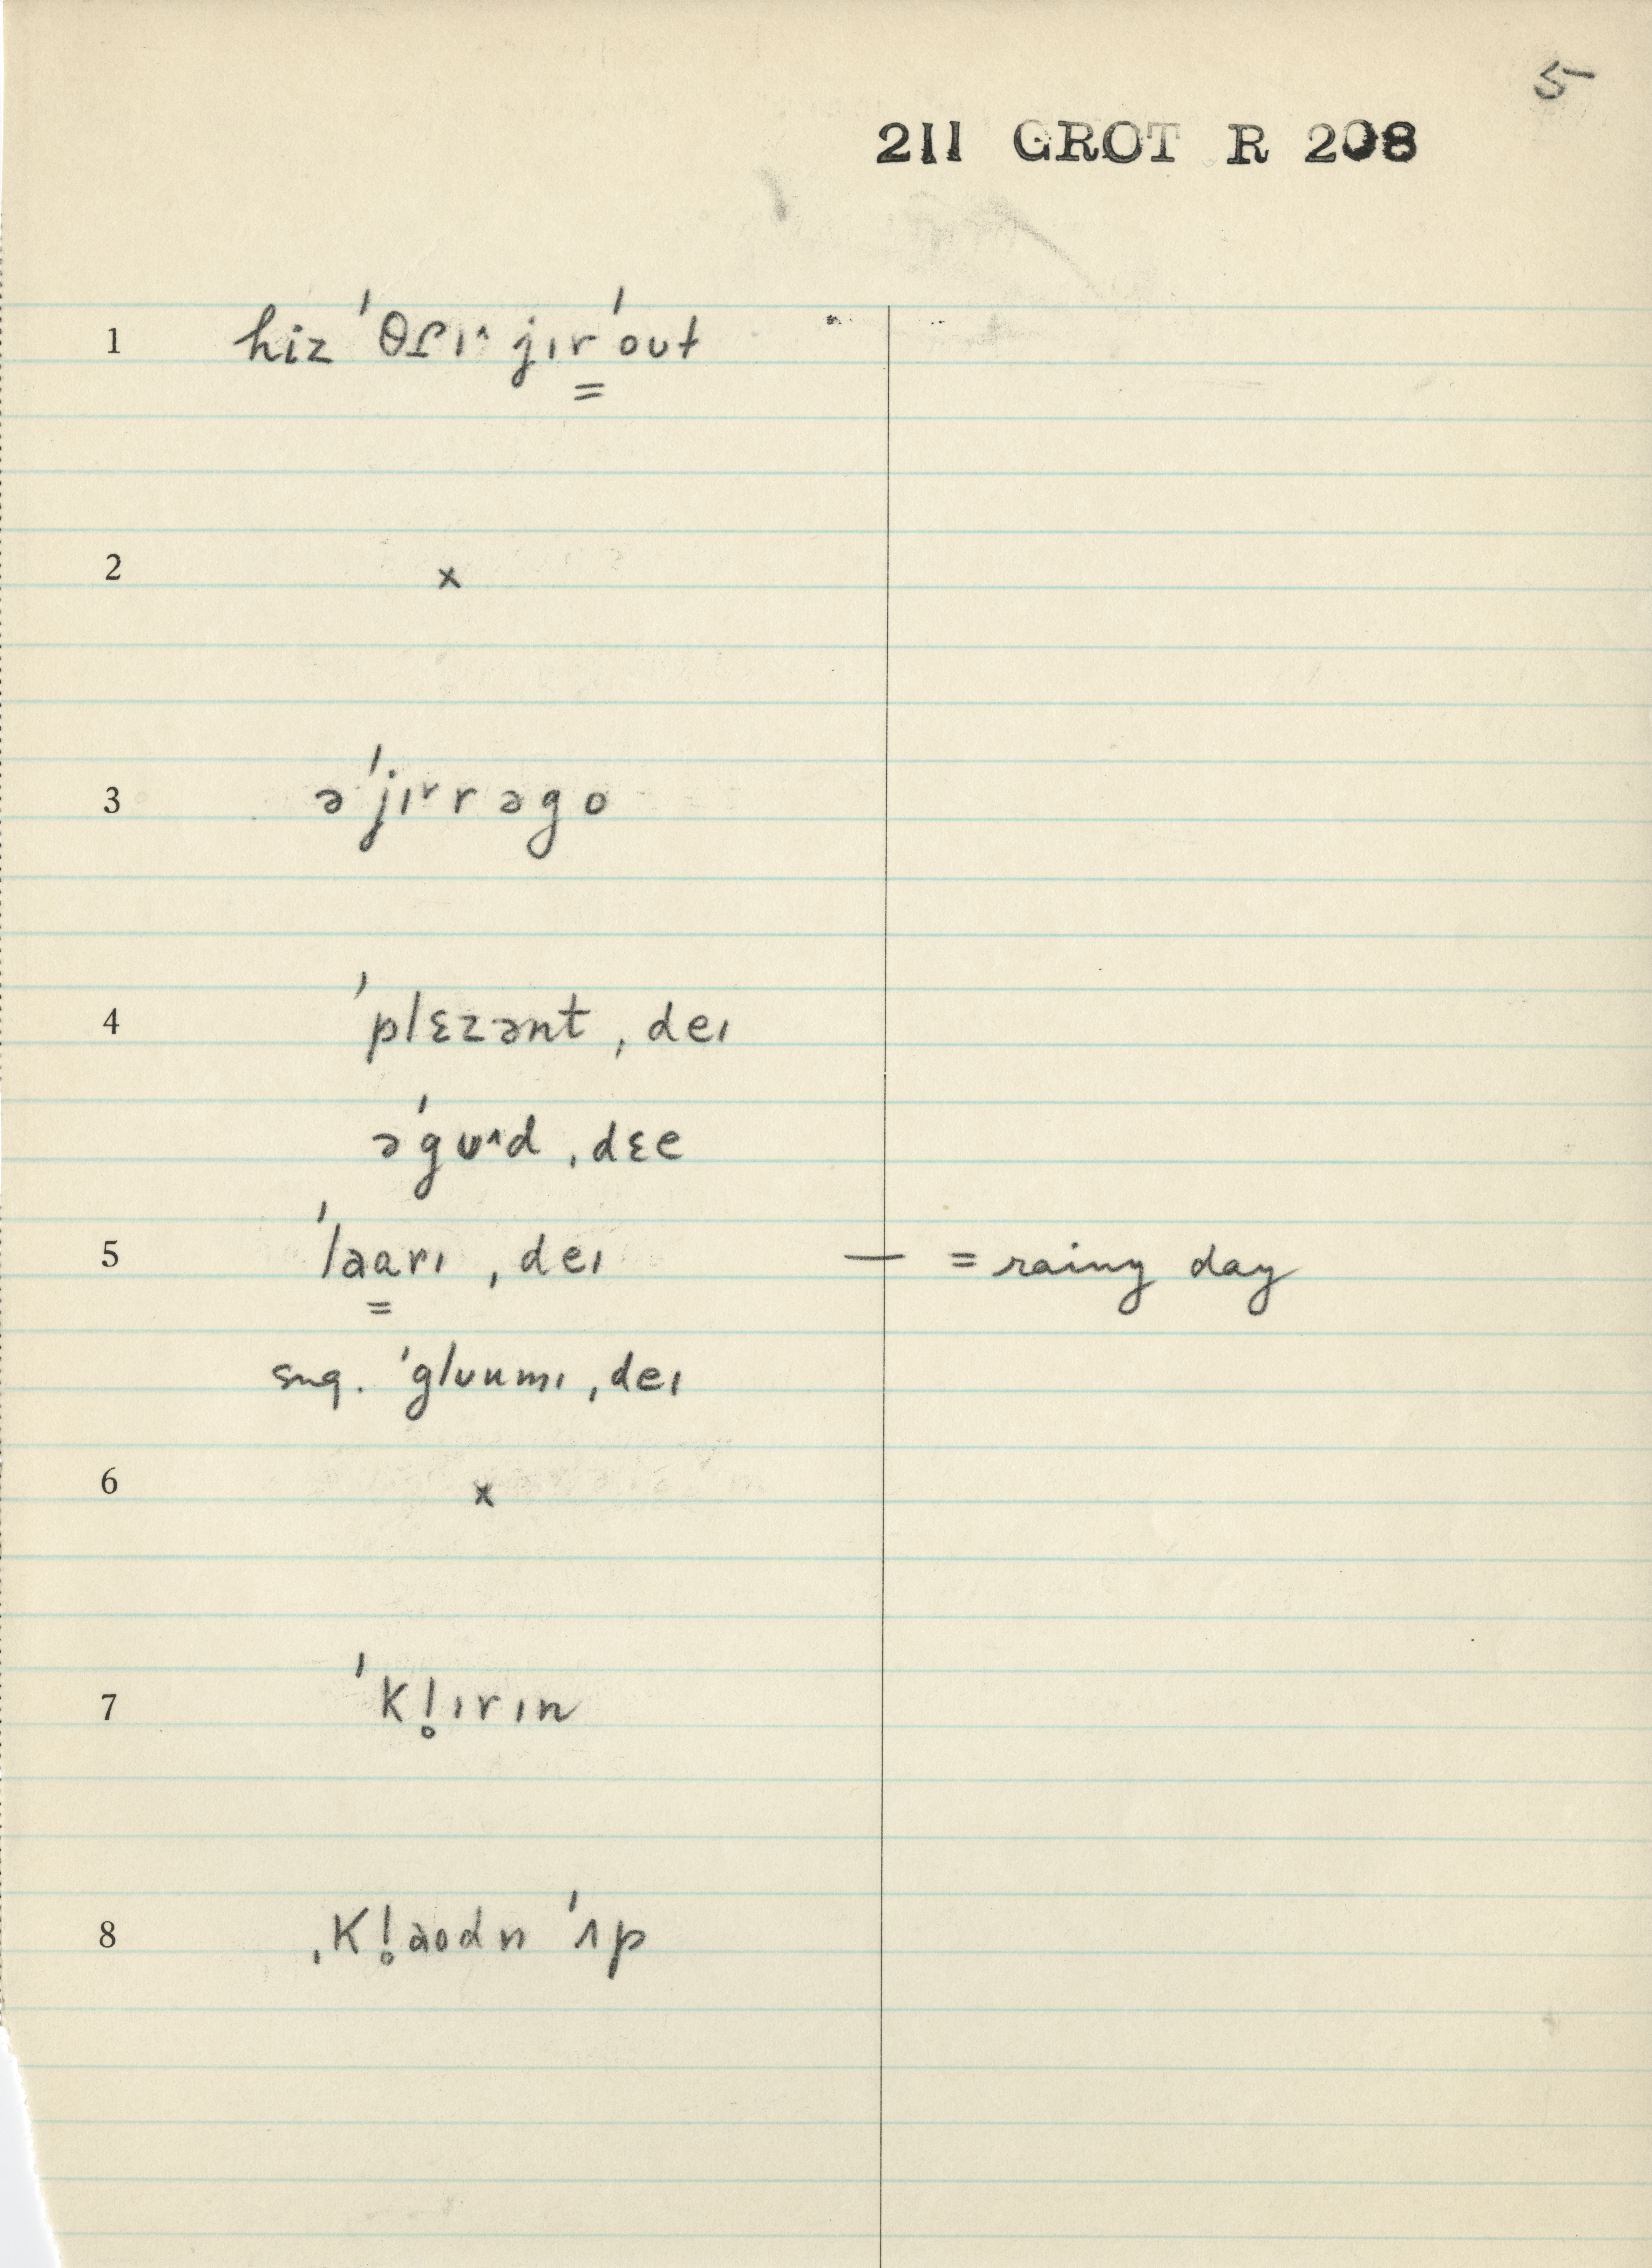 5
211 GROT R 208
1 hiz ˈθɾɪ˄ jɪr̳ ˈout
2 x
3 əˈjɪ˅rrəgo
4 ˈplɛzənt ˌdeɪ
əˈgʊ˄d ˌdɛe
5 ˈla̳arɪ ˌdeɪ — = rainy day
sug. ˈgluumɪ ˌdeɪ
6 x
7 ˈkl̥ɪrɪn
8 ˌkl̥aodn ˈʌp